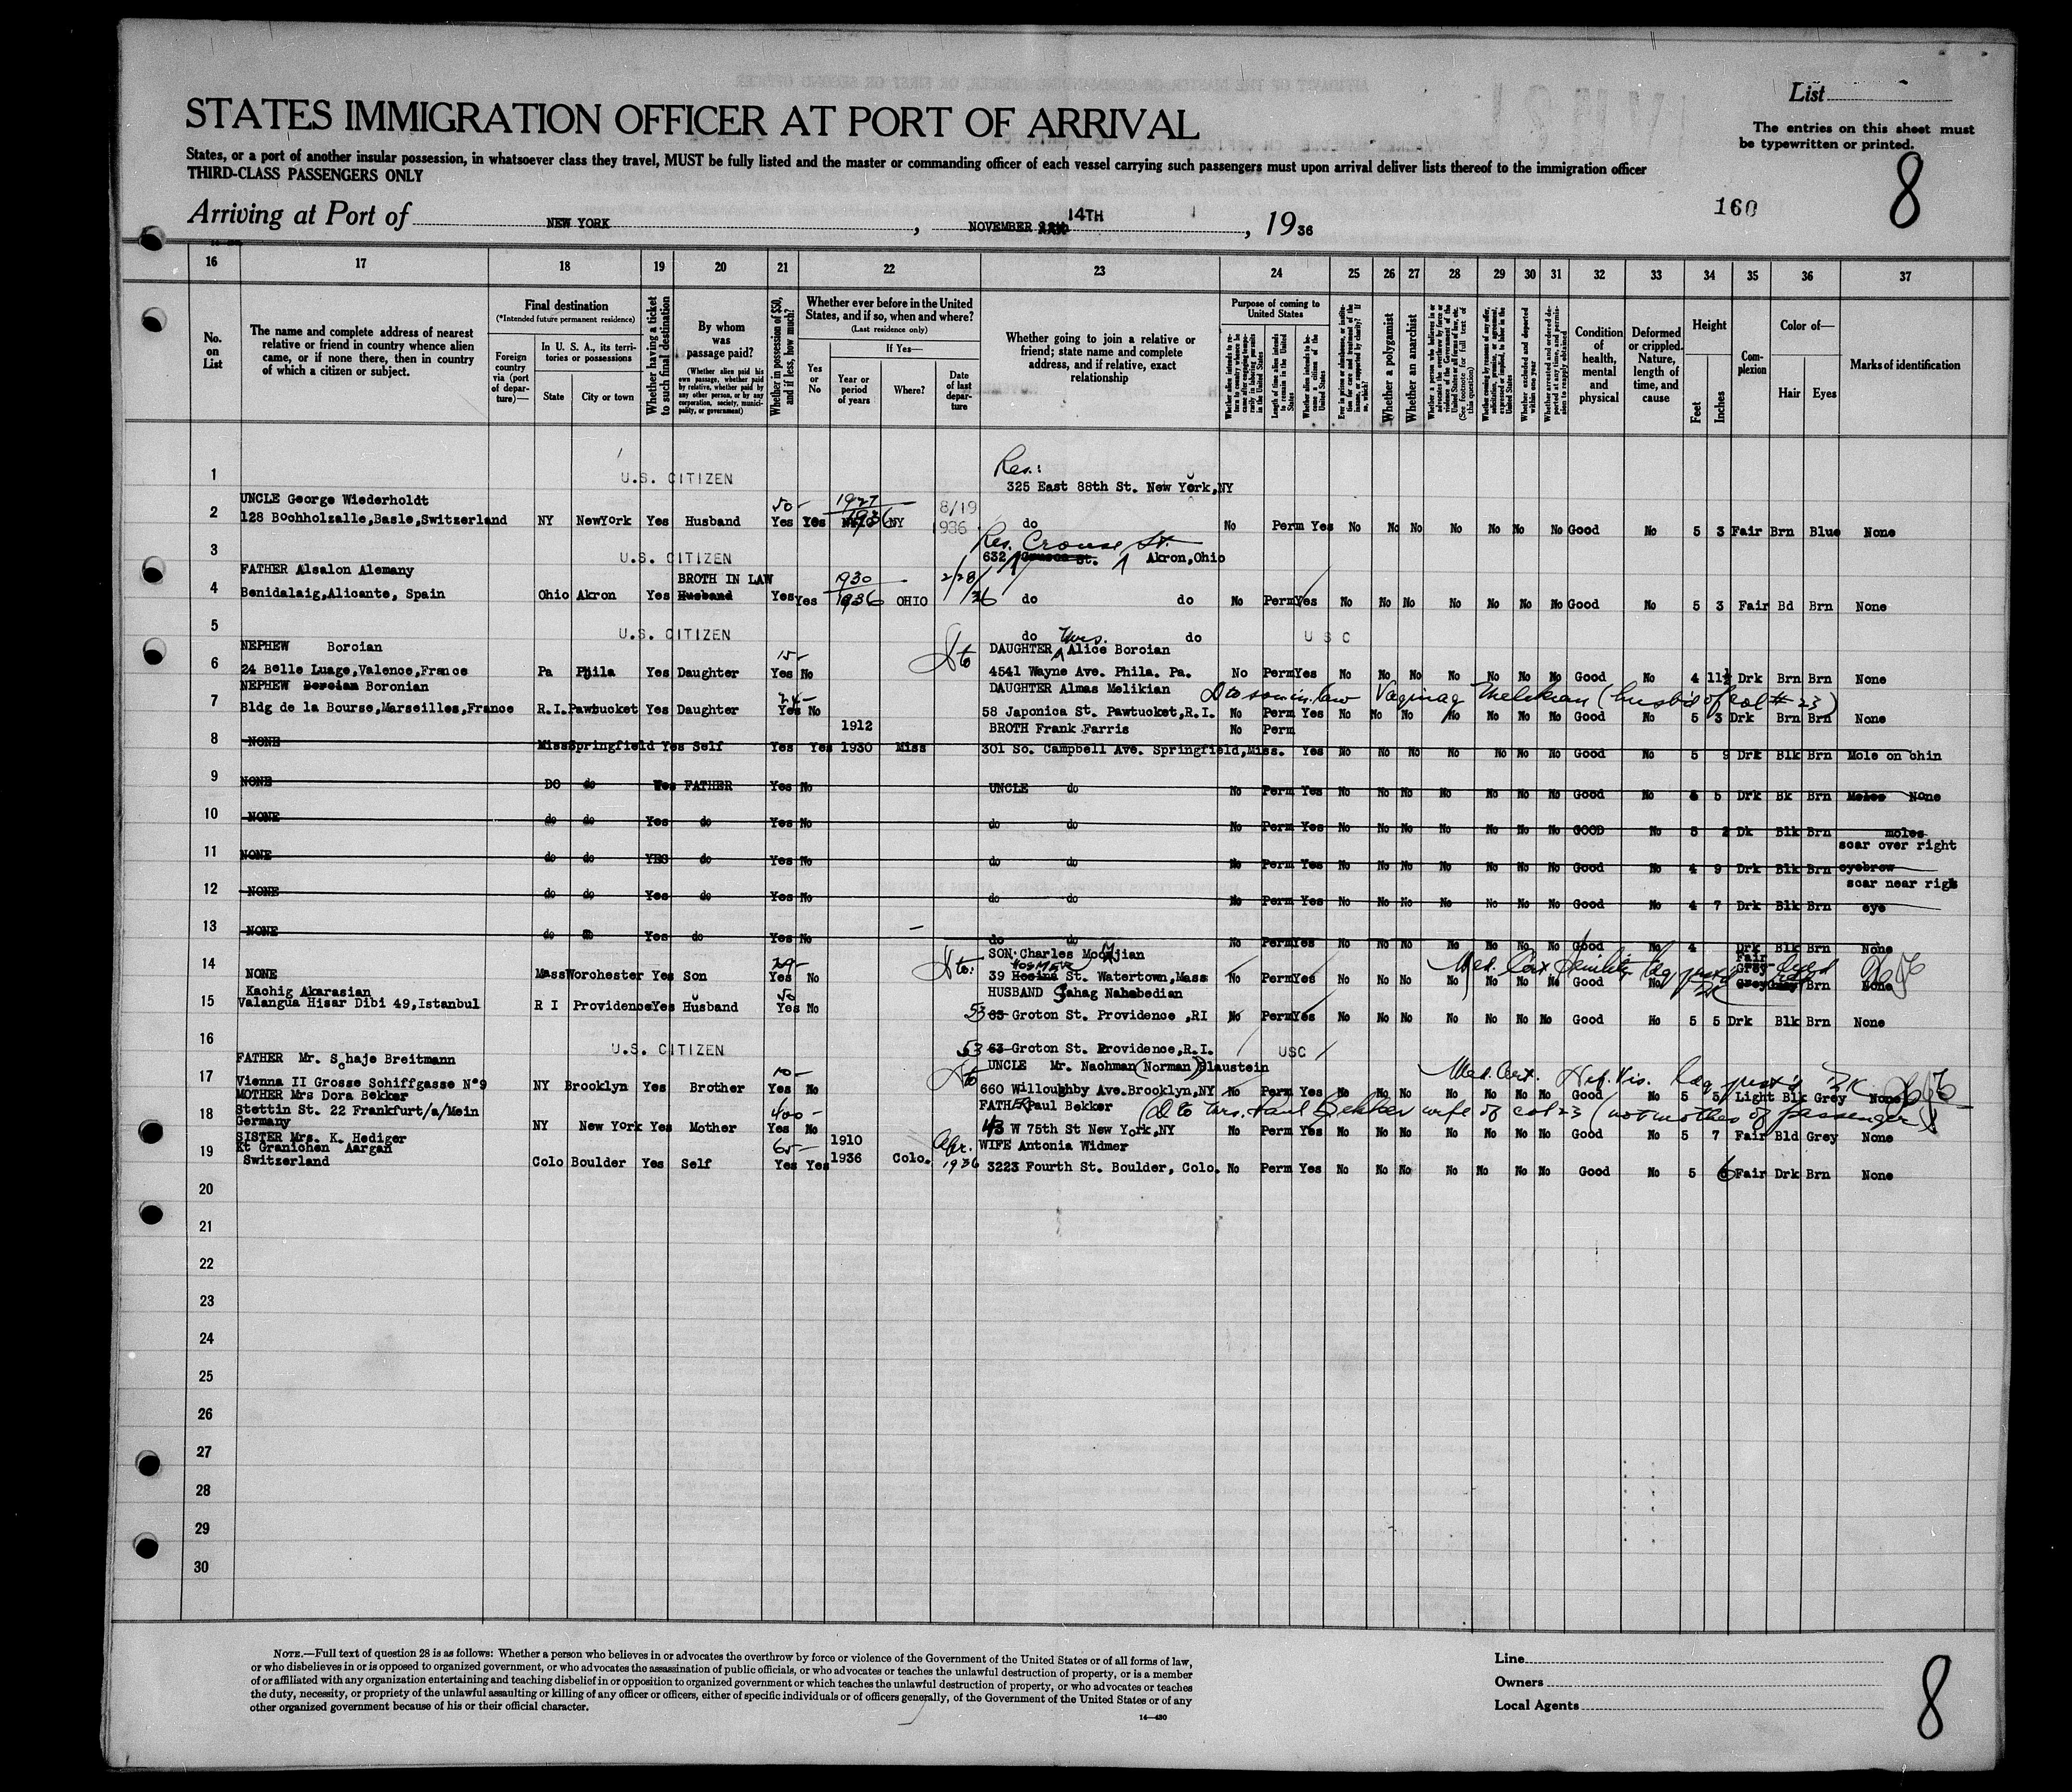 List
STATES IMMIGRATION OFFICER AT PORT OF ARRIVAL
The entries on this sheet must
be typewritten or printed.
States, or a port of another insular possession, in whatsoever class they travel, MUST be fully listed and the master or commanding officer of each vessel carrying such passengers must upon arrival deliver lists thereof to the immigration officer
THIRD-CLASS PASSENGERS ONLY
160 8
Arriving at Port of NEW YORK, NOVEMBER 14TH, 1936
16 17 18 19 20 21 22 23 24 25 26 27 28 29 30 31 32 33 34 35 36 37
No. on List
The name and complete address of nearest relative or friend in country whence alien came, or if none there, then in country of which a citizen or subject.
Final destination
(*Intended future permanent residence)
Foreign country via (port of departure)—
In U. S. A., its territories or possessions
State City or town
Whether having a ticket to such final destination
By whom was passage paid?
(Whether alien paid his own passage, whether paid by relative, whether paid by any other person, or by any corporation, society, municipality, or government)
Whether in possession of $50, and if less, how much?
Whether ever before in the United States, and if so, when and where?
(Last residence only)
Yes or No
If Yes—
Year or period of years Where? Date of last departure
Whether going to join a relative or friend; state name and complete address, and if relative, exact relationship
Purpose of coming to United States
Whether a polygamist
Whether an anarchist
Condition of health, mental and physical
Deformed or crippled. Nature, length of time, and cause
Height
Feet Inches
Complexion
Color of—
Hair Eyes
Marks of identification
1 U.S. CITIZEN Res.:
325 East 88th St. New York,NY
UNCLE George Wiederholdt 50- 1927 8/19
2 128 Bochholzalle,Basle,Switzerland NY NewYork Yes Husband Yes Yes 1936 NY 1936 do No Perm Yes No No No No No No No Good No 5 3 Fair Brn Blue None
3 U.S. CITIZEN Res. Crouse St.
632 Akron,Ohio
FATHER Alsalon Alemany BROTH IN LAW 1930 2/28/
4 Benidalaig,Alicante, Spain Ohio Akron Yes Husband Yes Yes 1936 OHIO 36 do do No Perm Yes No No No No No No No Good No 5 3 Fair Bd Brn None
5 U.S. CITIZEN do do U S C
NEPHEW Boroian 15- DAUGHTER Mrs. Alice Boroian
6 24 Belle Luage,Valence,France Pa Phila Yes Daughter Yes No 4541 Wayne Ave. Phila. Pa. No Perm Yes No No No No No No No Good No 4 11½ Drk Brn Brn None
NEPHEW Boroian Boronian 24- DAUGHTER Almas Melikian D to son in law Vaginag Melikian (husb'd of col # 23)
7 Bldg de la Bourse,Marseilles,France R.I. Pawtucket Yes Daughter Yes No 58 Japonica St. Pawtucket,R.I. No Perm Yes No No No No No No No Good No 5 3 Drk Brn Brn None
1912 BROTH Frank Farris No Perm
8 NONE Miss Springfield Yes Self Yes Yes 1930 Miss 301 So. Campbell Ave. Springfield,Miss. Yes No No No No No No No Good No 5 9 Drk Blk Brn Mole on chin
9 NONE DO do Yes FATHER Yes No UNCLE do No Perm Yes No No No No No No No Good No 5 Drk Bk Brn Moles None
10 NONE do do Yes do Yes No do do No Perm Yes No No No No No No No GOOD No 5 2 Dk Blk Brn moles
scar over right
11 NONE do do YES do Yes No do do No Perm Yes No No No No No No No Good No 4 9 Drk Blk Brn eyebrow
scar near right
12 NONE do do Yes do Yes No do do No Perm Yes No No No No No No No Good No 4 7 Drk Blk Brn eye
13 NONE do do Yes do Yes No do do No Perm Yes No No No No No No No Good No 4 Drk Blk Brn None
SON Charles Moomjian
14 NONE Mass Worchester Yes Son Yes No 39 Hosmer St. Watertown,Mass No Perm Yes No No No No No No No Good No Fair Grey Brn None
Med. Cert. Senility
Kachig Akarasian 50 HUSBAND Sahag Nahabedian
15 Valangua Hisar Dibi 49,Istanbul R I Providence Yes Husband Yes No 53 63 Groton St. Providence ,RI No Perm Yes No No No No No No No Good No 5 5 Drk Blk Brn None
16 U.S. CITIZEN 53 63 Groton St. Providence,R.I. USC
FATHER Mr. Schaje Breitmann 10- UNCLE Mr. Nachman (Norman) Blaustein Med. Cert. Def. Vis.
17 Vienna II Grosse Schiffgasse N°9 NY Brooklyn Yes Brother Yes No 660 Willoughby Ave.Brooklyn,NY No Perm Yes No No No No No No No Good No 5 5 Light Blk Grey None
MOTHER Mrs Dora Bekker 400- FATHER Paul Bekker (D to Mrs. Paul Bekker wife of col 23 (not mother of passenger)
18 Stettin St. 22 Frankfurt/a/Mein
Germany NY New York Yes Mother Yes No 43 W 75th St New York,NY No Perm Yes No No No No No No No Good No 5 7 Fair Bld Grey None
SISTER Mrs. K. Hediger 65- 1910 Apr. WIFE Antonia Widmer
19 Kt Granichen Aargan
Switzerland Colo Boulder Yes Self Yes Yes 1936 Colo. 1936 3223 Fourth St. Boulder, Colo. No Perm Yes No No No No No No No Good No 5 6 Fair Drk Brn None
20
21
22
23
24
25
26
27
28
29
30
NOTE.—Full text of question 28 is as follows: Whether a person who believes in or advocates the overthrow by force or violence of the Government of the United States or of all forms of law,
or who disbelieves in or is opposed to organized government, or who advocates the assassination of public officials, or who advocates or teaches the unlawful destruction of property, or is a member
of or affiliated with any organization entertaining and teaching disbelief in or opposition to organized government or which teaches the unlawful destruction of property, or who advocates or teaches
the duty, necessity, or propriety of the unlawful assaulting or killing of any officer or officers, either of specific individuals or of officers generally, of the Government of the United States or of any
other organized government because of his or their official character.
14—430
Line
Owners
Local Agents
8